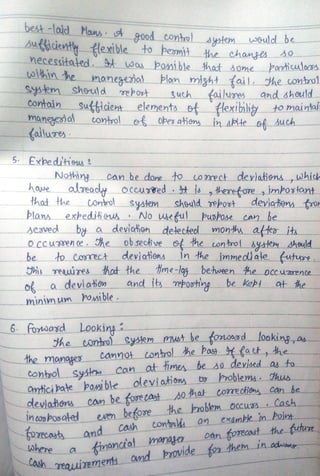 best-laid Plans. A good control system would be
sufficiently flexible to permit the changes so
necessitated. It was possible that some particulars
within the managerial plan might fail. The control
system should report such failures and should
contain sufficient elements of flexibility to maintai
managerial control of operations in spite of such
failures.
5. Expeditious :
Nothing can be done to correct deviations, which
have already occurred. It is, therefore, important
that the control system should report deviations from
plans expeditious. No useful Purpose can be
served by a deviation detected months after its
occurrence. The objective of the control system should
be to correct deviations in the immediate future.
This requires that the time-lag between the occurrence
of a deviation and its reporting be kept at the
minimum possible.
6. Forward Looking :
The control system must be forward looking, as
the manager cannot control the Past. If fact, the
control system can at times be so devised as to
anticipate possible deviations or Problems. Thus
deviations can be forecast so that corrections can be
incorporated even before the Problem occurs. Cash
forecasts and cash controls an example in Point
where a financial manager can forecast the future
cash requirements and provide for them in advance.